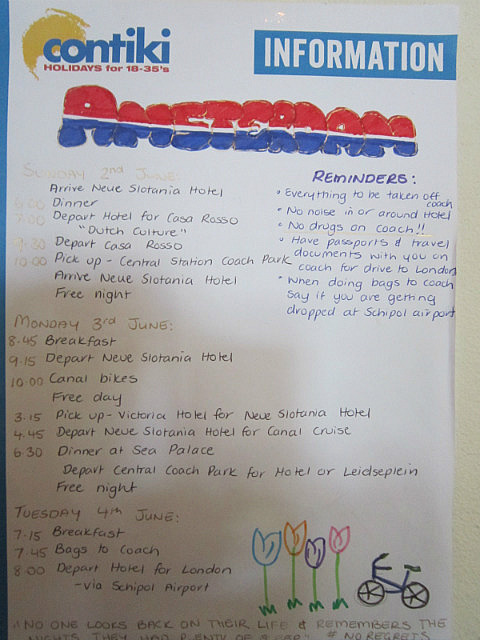 contiki
HOLIDAYS for 18-35's
INFORMATION
AMSTERDAM
SUNDAY 2nd JUNE:
Arrive Neue Slotania Hotel
6:00 Dinner
7:00 Depart Hotel for Casa Rosso
"Dutch Culture"
9:30 Depart Casa Rosso
10:00 Pick up - Central Station Coach Park
Arrive Neue Slotania Hotel
Free night
REMINDERS:
• Everything to be taken off coach
• No noise in or around Hotel
• No drugs on coach!!
• Have passports & travel
documents with you on
coach for drive to London
• When doing bags to coach
say if you are getting
dropped at Schipol airport
MONDAY 3rd JUNE:
8.45 Breakfast
9.15 Depart Neue Slotania Hotel
10.00 Canal bikes
Free day
3.15 Pick up - Victoria Hotel for Neue Slotania Hotel
4.45 Depart Neue Slotania Hotel for Canal Cruise
6.30 Dinner at Sea Palace
Depart Central Coach Park for Hotel or Leidseplein
Free night
TUESDAY 4th JUNE:
7.15 Breakfast
7.45 Bags to Coach
8.00 Depart Hotel for London
- via Schipol Airport
"NO ONE LOOKS BACK ON THEIR LIFE & REMEMBERS THE
NIGHTS THEY HAD PLENTY OF SLEEP" # NO REGRETS